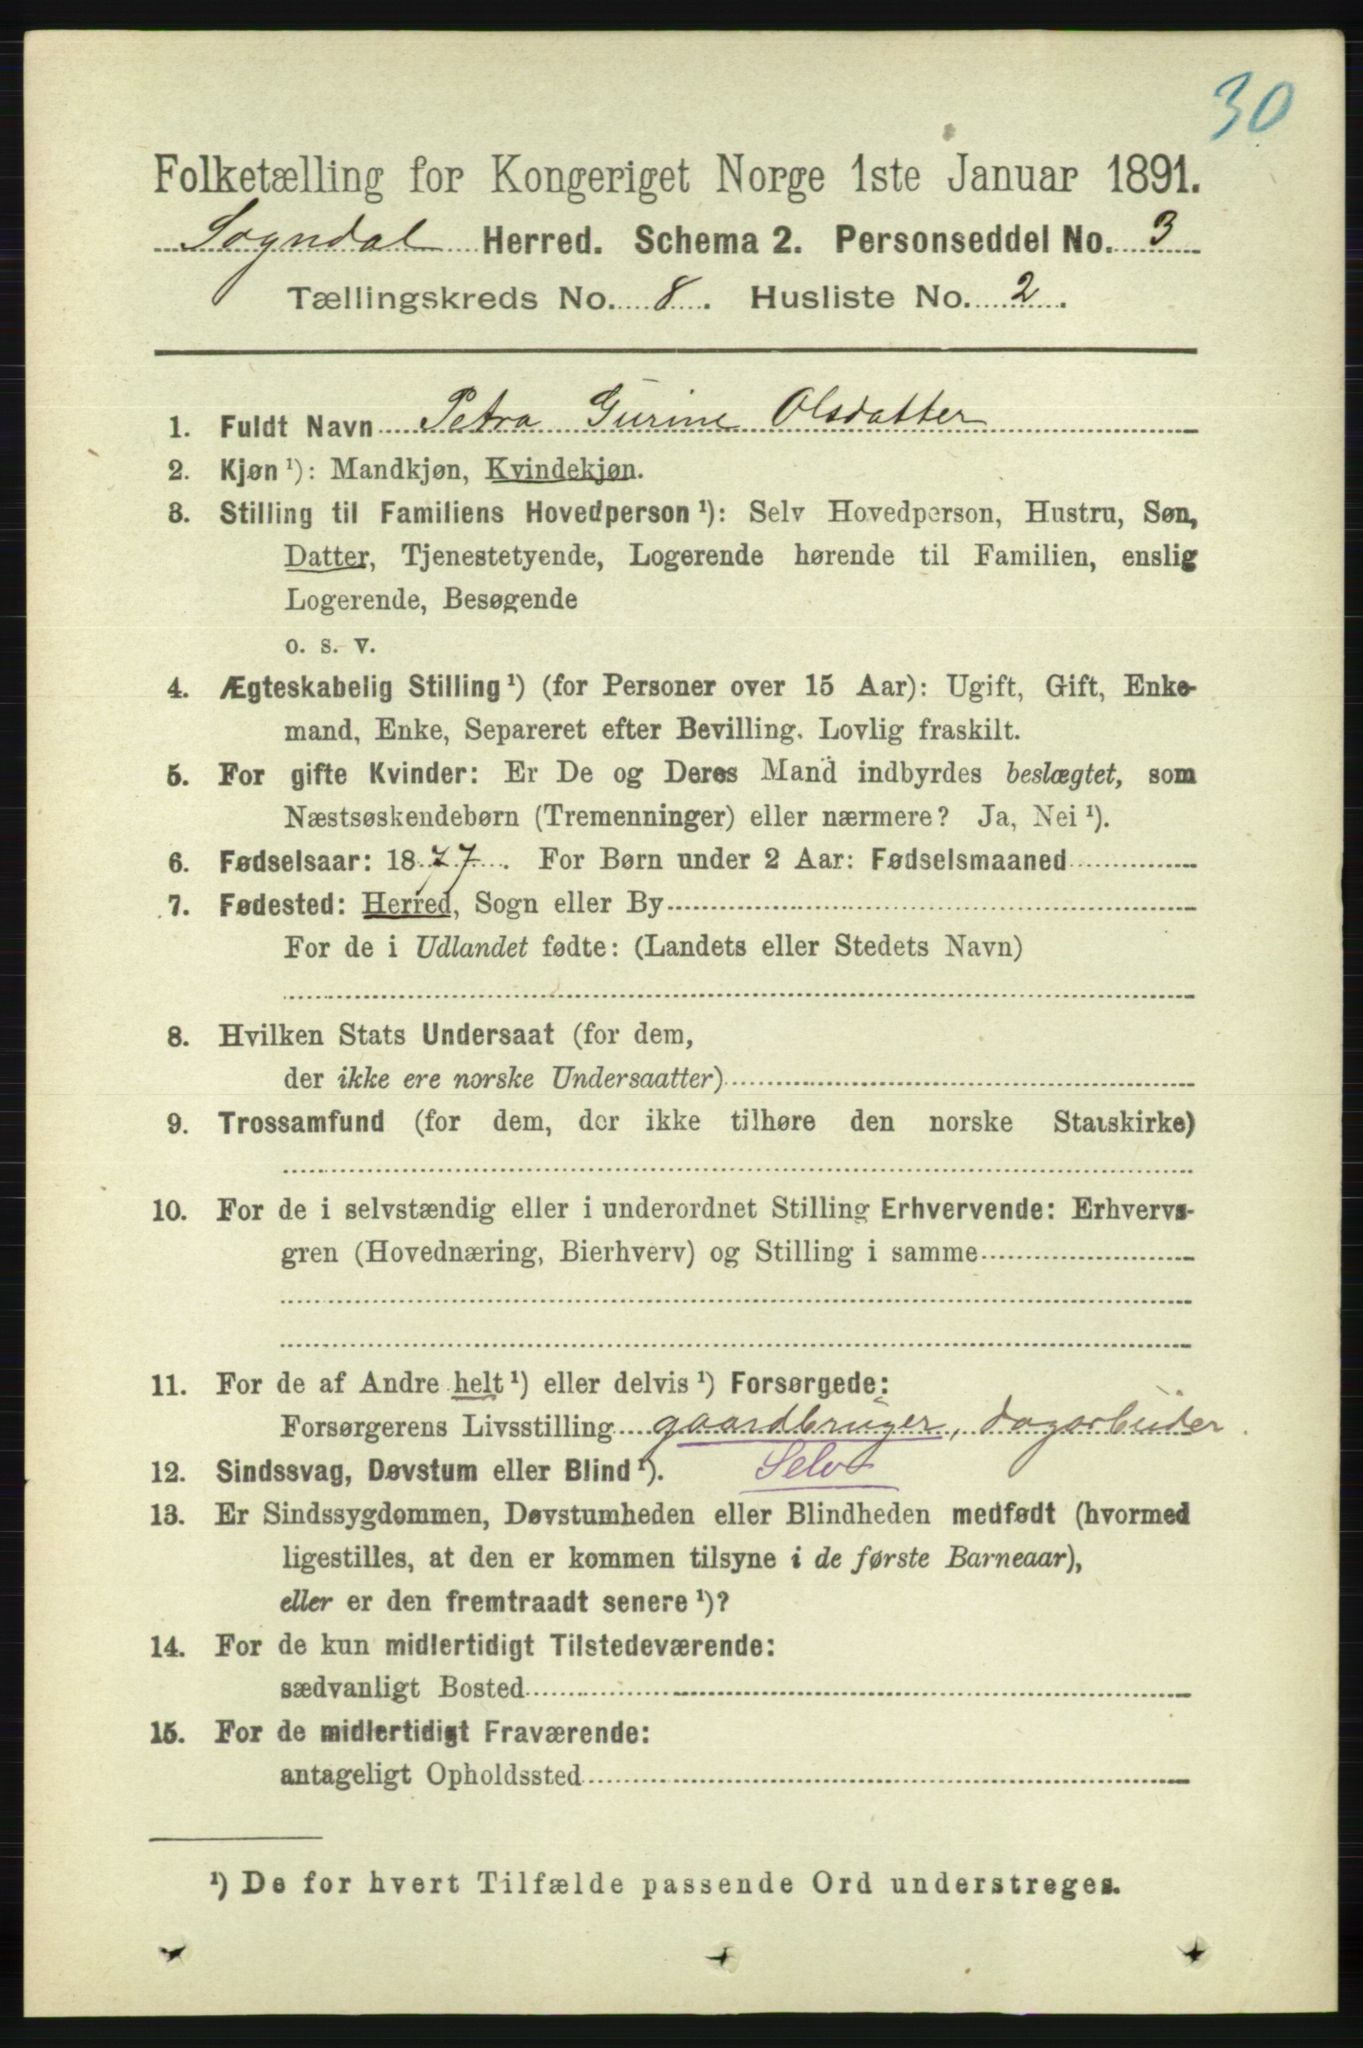 30
Folketælling for Kongeriget Norge 1ste Januar 1891.
Sogndal Herred. Schema 2. Personseddel No. 3
Tællingskreds No. 8. Husliste No. 2.
1. Fuldt Navn Petra Gurine Olsdatter
2. Kjøn ¹): Mandkjøn, Kvindekjøn.
3. Stilling til Familiens Hovedperson ¹): Selv Hovedperson, Hustru, Søn,
Datter, Tjenestetyende, Logerende hørende til Familien, enslig
Logerende, Besøgende
o. s. v.
4. Ægteskabelig Stilling ¹) (for Personer over 15 Aar): Ugift, Gift, Enke-
mand, Enke, Separeret efter Bevilling. Lovlig fraskilt.
5. For gifte Kvinder: Er De og Deres Mand indbyrdes beslægtet, som
Næstsøskendebørn (Tremenninger) eller nærmere? Ja, Nei ¹).
6. Fødselsaar: 1877. For Børn under 2 Aar: Fødselsmaaned
7. Fødested: Herred, Sogn eller By
For de i Udlandet fødte: (Landets eller Stedets Navn)
8. Hvilken Stats Undersaat (for dem,
der ikke ere norske Undersaatter)
9. Trossamfund (for dem, der ikke tilhøre den norske Statskirke)
10. For de i selvstændig eller i underordnet Stilling Erhvervende: Erhvervs-
gren (Hovednæring, Bierhverv) og Stilling i samme
11. For de af Andre helt ¹) eller delvis ¹) Forsørgede:
Forsørgerens Livsstilling gaardbruger, dagarbeider.
12. Sindssvag, Døvstum eller Blind ¹). Selv
13. Er Sindssygdommen, Døvstumheden eller Blindheden medfødt (hvormed
ligestilles, at den er kommen tilsyne i de første Barneaar),
eller er den fremtraadt senere ¹)?
14. For de kun midlertidigt Tilstedeværende:
sædvanligt Bosted
15. For de midlertidigt Fraværende:
antageligt Opholdssted
¹) De for hvert Tilfælde passende Ord understreges.